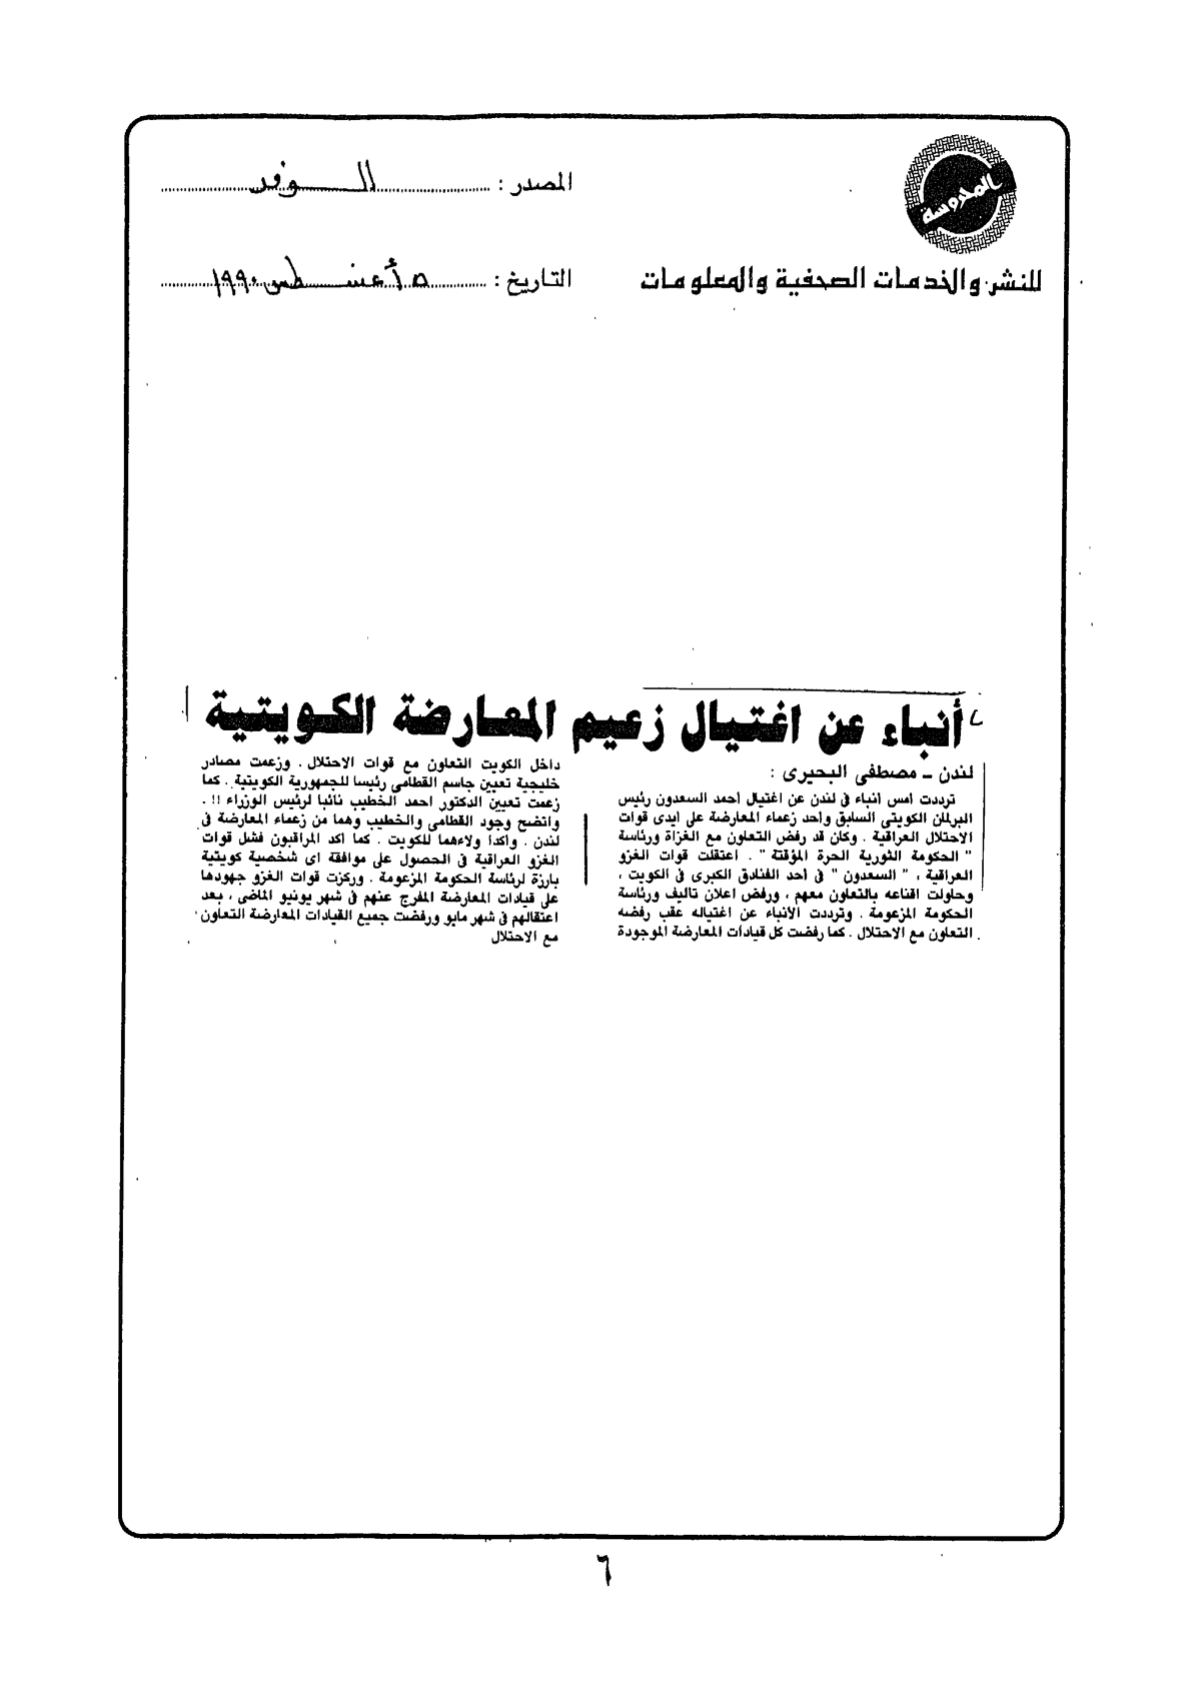 المحروسة
للنشر والخدمات الصحفية والمعلومات
المصدر : الوفد
التاريخ : ٥ أغسطس ١٩٩٠
أنباء عن اغتيال زعيم المعارضة الكويتية
لندن ـ مصطفى البحيرى :
ترددت امس انباء فى لندن عن اغتيال أحمد السعدون رئيس
البرلمان الكويتى السابق واحد زعماء المعارضة على ايدى قوات
الاحتلال العراقية . وكان قد رفض التعاون مع الغزاة ورئاسة
" الحكومة الثورية الحرة المؤقتة " . اعتقلت قوات الغزو
العراقية ، " السعدون " فى احد الفنادق الكبرى فى الكويت ،
وحاولت اقناعه بالتعاون معهم ، ورفض اعلان تاليف ورئاسة
الحكومة المزعومة . وترددت الأنباء عن اغتياله عقب رفضه
التعاون مع الاحتلال . كما رفضت كل قيادات المعارضة الموجودة
داخل الكويت التعاون مع قوات الاحتلال . وزعمت مصادر
خليجية تعيين جاسم القطامى رئيسا للجمهورية الكويتية . كما
زعمت تعيين الدكتور احمد الخطيب نائبا لرئيس الوزراء !! .
واتضح وجود القطامى والخطيب وهما من زعماء المعارضة فى
لندن . وأكدا ولاءهما للكويت . كما اكد المراقبون فشل قوات
الغزو العراقية فى الحصول على موافقة اى شخصية كويتية
بارزة لرئاسة الحكومة المزعومة . وركزت قوات الغزو جهودها
على قيادات المعارضة المفرج عنهم فى شهر يونيو الماضى ، بعد
اعتقالهم فى شهر مايو ورفضت جميع القيادات المعارضة التعاون
مع الاحتلال
٦